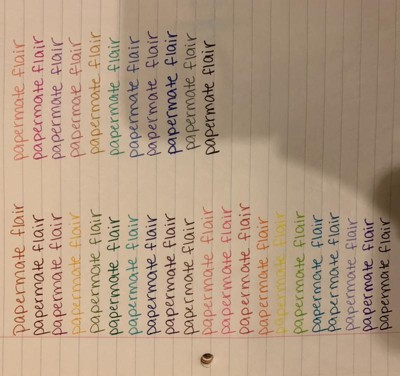 papermate flair papermate flair
papermate flair papermate flair
papermate flair papermate flair
papermate flair papermate flair
papermate flair papermate flair
papermate flair papermate flair
papermate flair papermate flair
papermate flair papermate flair
papermate flair papermate flair
papermate flair papermate flair
papermate flair papermate flair
papermate flair
papermate flair
papermate flair
papermate flair
papermate flair
papermate flair
papermate flair
papermate flair
papermate flair
papermate flair